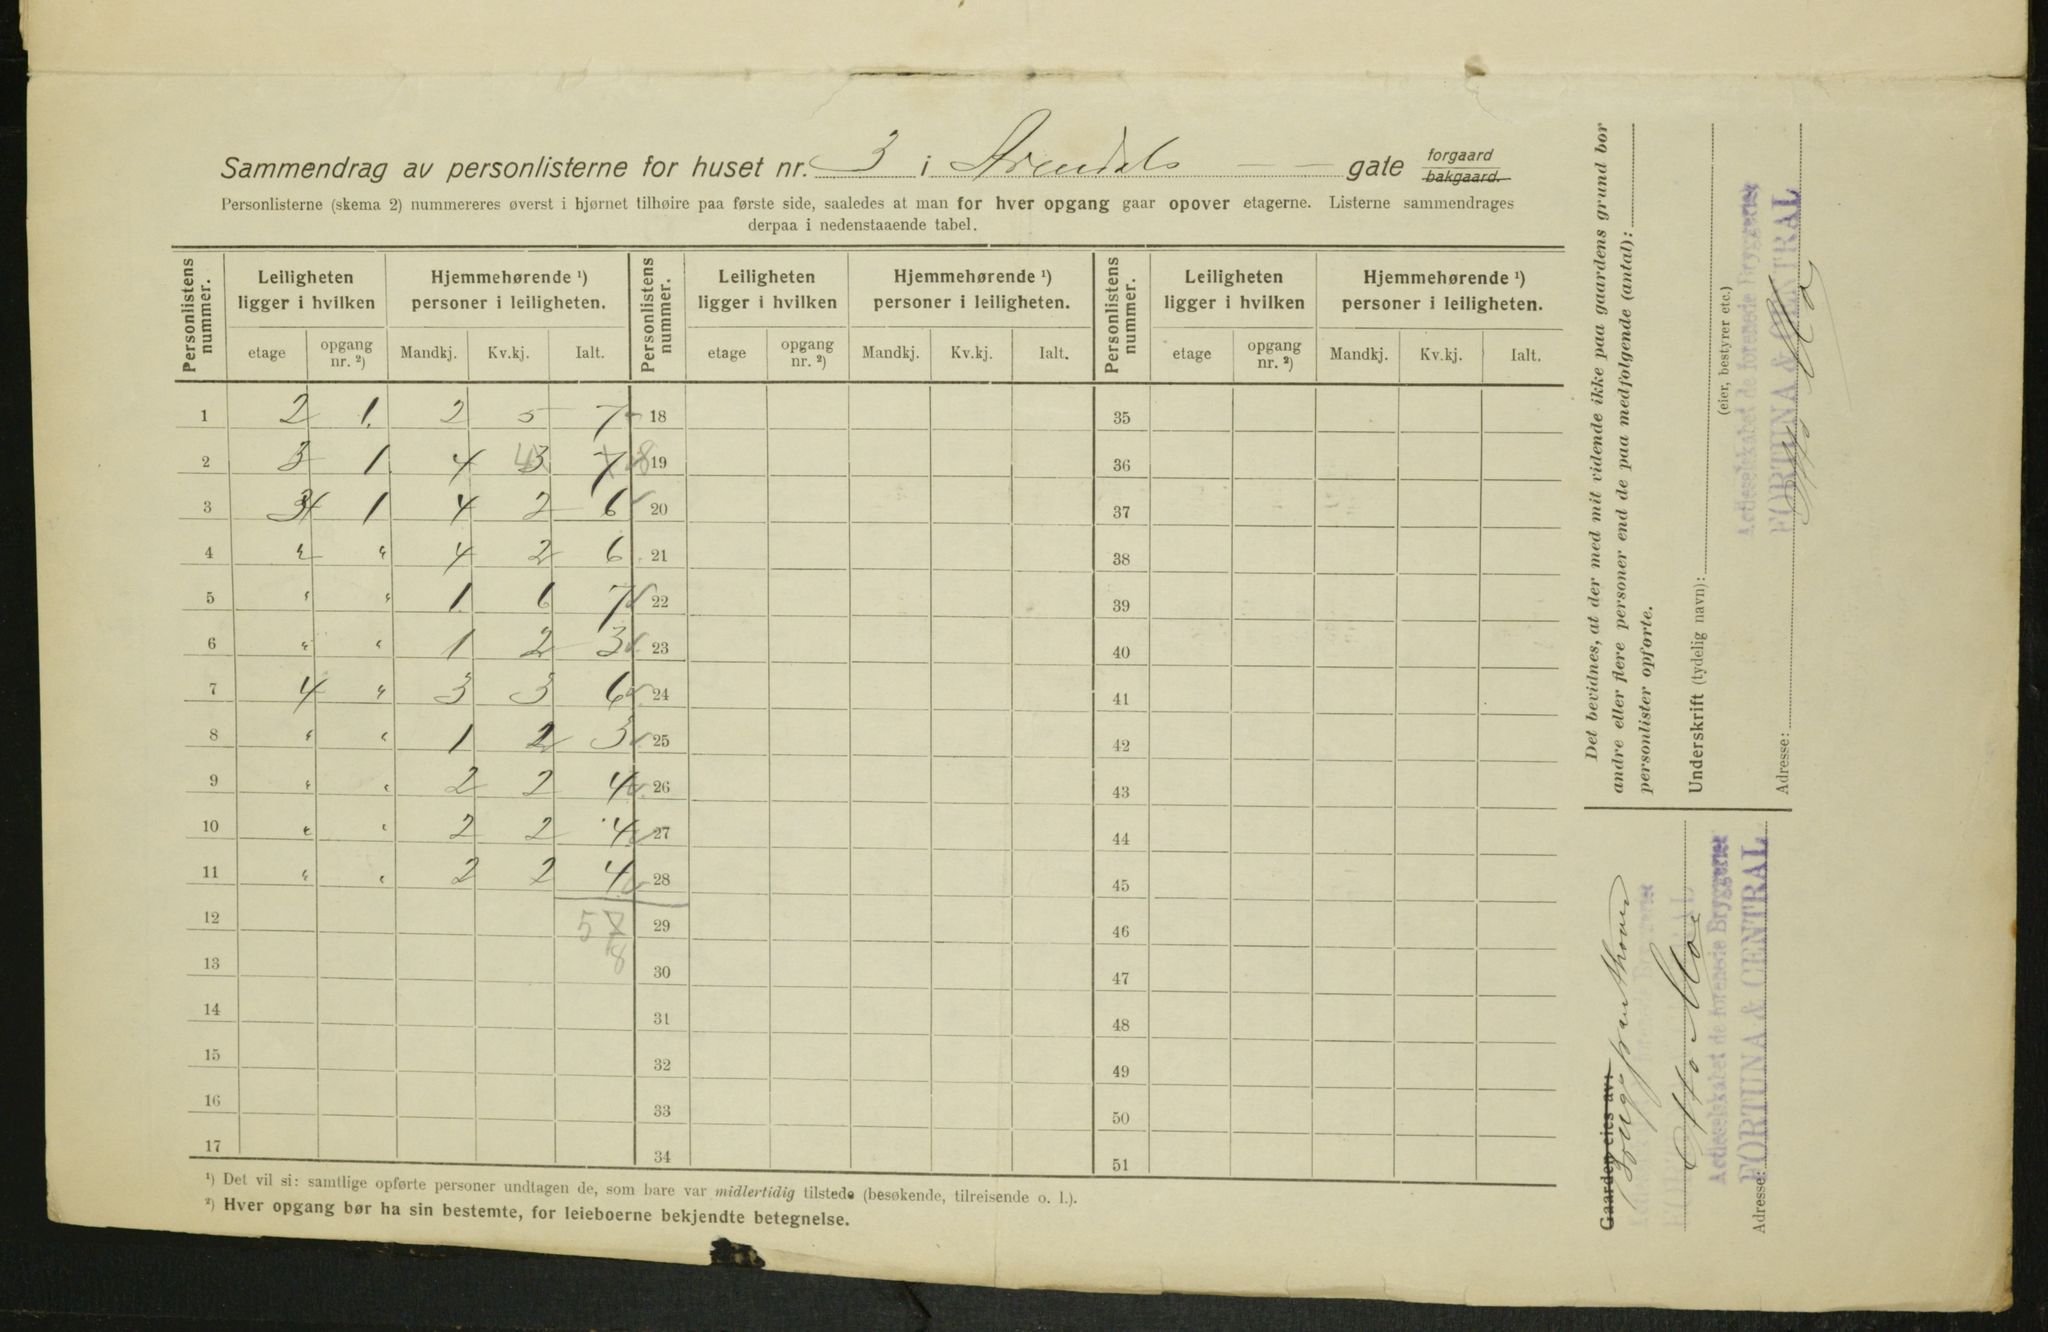 Sammendrag av personlisterne for huset nr. 3 i Arendals — — gate forgaard bakgaard.
Personlisterne (skema 2) nummereres øverst i hjørnet tilhøire paa første side, saaledes at man for hver opgang gaar opover etagerne. Listerne sammendrages
derpaa i nedenstaaende tabel.
Personlistens nummer. Leiligheten ligger i hvilken Hjemmehørende ¹) personer i leiligheten. Personlistens nummer. Leiligheten ligger i hvilken Hjemmehørende ¹) personer i leiligheten. Personlistens nummer. Leiligheten ligger i hvilken Hjemmehørende ¹) personer i leiligheten.
etage opgang nr. ²) Mandkj. Kv.kj. Ialt. etage opgang nr. ²) Mandkj. Kv.kj. Ialt. etage opgang nr. ²) Mandkj. Kv.kj. Ialt.
1 2 1. 2 5 7 18 35
2 3 1 4 4 3 7 8 19 36
3 34 1 4 2 6 20 37
4 " " 4 2 6 21 38
5 " " 1 6 7 22 39
6 " " 1 2 3 23 40
7 4 " 3 3 6 24 41
8 " " 1 2 3 25 42
9 " " 2 2 4 26 43
10 " " 2 2 4 27 44
11 " " 2 2 4 28 45
12 57 29 46
13 8 30 47
14 31 48
15 32 49
16 33 50
17 34 51
¹) Det vil si: samtlige opførte personer undtagen de, som bare var midlertidig tilstede (besøkende, tilreisende o. l.).
²) Hver opgang bør ha sin bestemte, for leieboerne bekjendte betegnelse.
Det bevidnes, at der med mit vidende ikke paa gaardens grund bor
andre eller flere personer end de paa medfølgende (antal):
personlister opførte.
Underskrift (tydelig navn):
(eier, bestyrer etc.)
Actieselskabet de forenede Bryggerier
FORTUNA & CENTRAL
Adresse: Otto Moe
Gaarden eies av:
Otto Moe
Actieselskabet de forenede Bryggerier
FORTUNA & CENTRAL
Adresse: